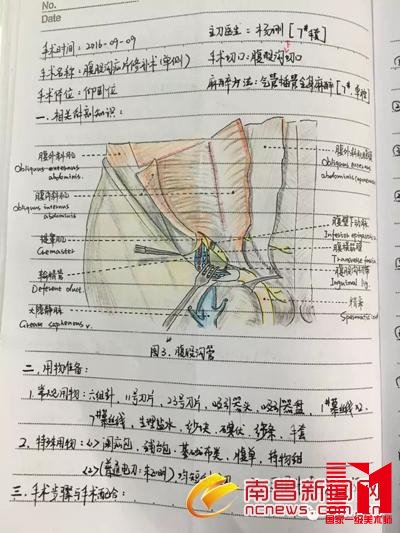 No.
Date
手术时间：2016-09-09
主刀医生：杨刚 [7#手套]
手术名称：腹股沟疝片修补术(单侧)
手术切口：腹股沟切口
手术体位：仰卧位
麻醉方法：气管插管全身麻醉
一、相关解剖知识：
腹外斜肌
Obliquus externus
abdominis.
腹内斜肌
Obliquus internus
abdominis
提睾肌
Cremaster
输精管
Deferent duct.
大隐静脉
Great saphenous v.
Obliquus externus
腹壁下动脉
Inferior epigastric
腹横筋膜
Transverse fascia
Inguinal lig.
精索
Spermatic cord
图3.腹股沟管
二、用物准备：
1.常规用物：六组针，11号刀片，23号刀片，吸引器头，吸引器盘，1#慕丝线x2，
7#慕丝线，生理盐水，纱块，碘伏，手套
2.特殊用物：<1>疝包，铺台包，基础布类，腹单，持物钳
<2>(普通电刀：
三、手术步骤与手术配合：
南昌新闻网
国家一级美术师